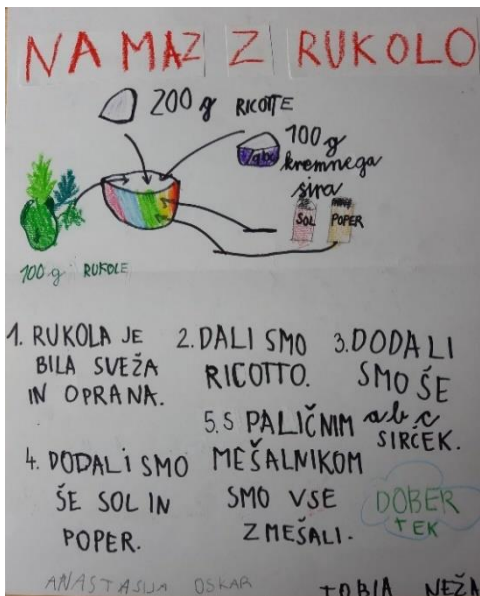 NAMAZ Z RUKOLO
200 g RICOTTE
100 g
kremnega
sira
abc
SOL
POPER
100 g RUKOLE
1. RUKOLA JE
BILA SVEŽA
IN OPRANA.
2. DALI SMO
RICOTTO.
3. DODALI
SMO ŠE
abc
SIRČEK.
4. DODALI SMO
ŠE SOL IN
POPER.
5. S PALIČNIM
MEŠALNIKOM
SMO VSE
ZMEŠALI.
DOBER
TEK
ANASTASIJA OSKAR TOBIA NEŽA